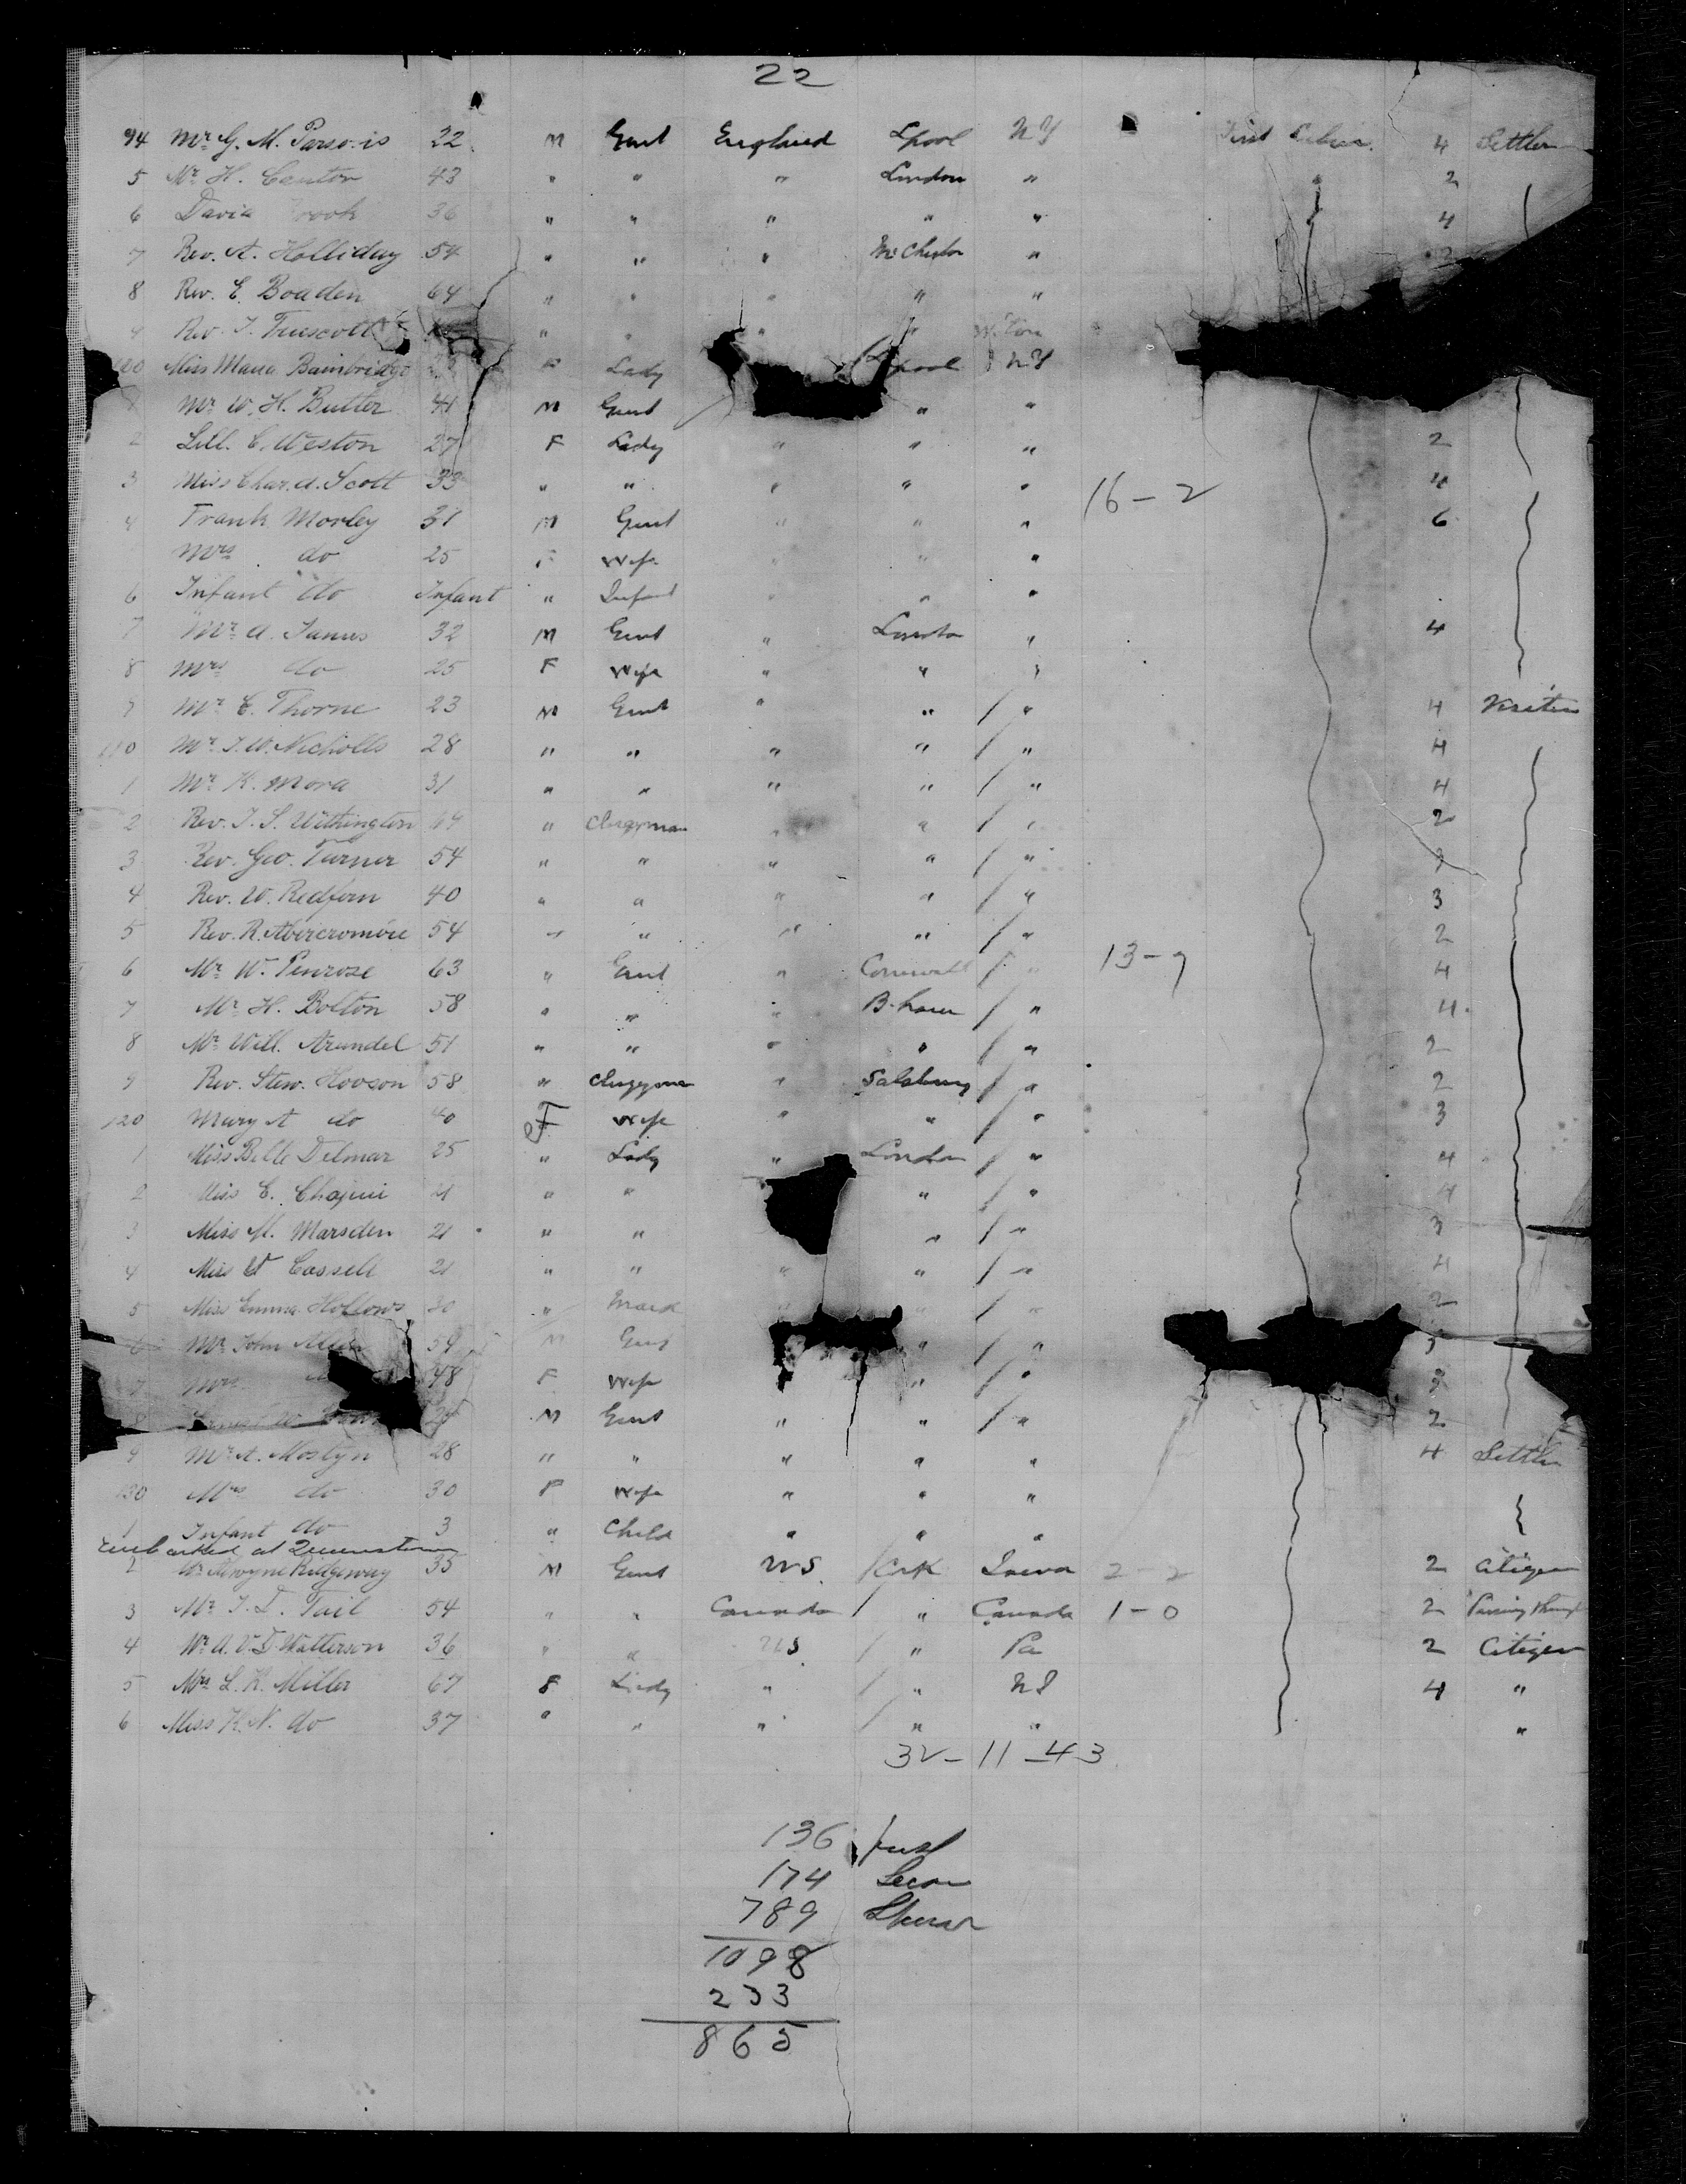 22
94 Mr. G. M. Parso is 22 M Gent England Lpool NY First Cabin 4 Settler
5 Mr. H. Canton 43 " " " London " 2
6 David rook 36 " " " " " 4
7 Rev. A. Holliday 54 " " " McChester "
8 Rev. E. Boaden 64 " " " " "
9 Rev. J. Truscott " " " "
100 Miss Maria Bainbridge F Lady Lpool NY
Mr. W. H. Butler 41 M Gent " "
2 Lill. C. Weston 27 F Lady " " " 2
3 Miss Char. A. Scott 33 " " " " " 4
16-2
4 Frank Morley 31 M Gent " " " 6
Mrs do 25 F Wife " " "
6 Infant do Infant " Infant " " "
7 Mr. A. 32 M Gent " London " 4
8 Mrs do 25 F Wife " " "
9 Mr. C. Thorne 23 M Gent " " / " 4 Visitor
110 Mr. J. W. Nicholls 28 " " " " / " 4
1 Mr. K. Mora 31 " " " " / " 4
2 Rev. J. S. Withington 69 " Clergyman " " / " 2
3 Rev. Geo. Turner 54 " " " " / " 3
4 Rev. W. Redfern 40 " " " " / " 3
5 Rev. R. Abercrombie 54 " " " " / " 2
13-9
6 Mr. W. Penrose 63 " Gent " Cornwall / " 4
7 Mr. H. Bolton 58 " " " B-ham / " 4
8 Mr. Will. Arundel 51 " " " " / " 2
9 Rev. Stew. Hooson 58 " Clergyman " Salsbury / " 2
120 Mary A do 40 F Wife " " / " 3
1 Miss Belle Delmar 25 " Lady " London / " 4
2 Miss E. 21 " " " / " 4
3 Miss M. Marsden 21 " " " / " 3
4 Miss Cassell 21 " " " " / " 4
5 Miss Emma Hollows 30 " Maid " " / " 2
6 Mr. John 59 M Gent " / " 3
7 Mrs 48 F Wife " / " 3
8 W. M Gent " " / " 2
9 Mr. A. Mostyn 28 " " " " " 4 Settler
130 Mrs do 30 F Wife " " "
1 Infant do 3 " Child " " "
Embarked at Queenstown
2 Mr. Ridgeway 35 M Gent US / Cork Iowa 2-2 2 Citizen
3 Mr. J. D. Tait 54 " " Canada / " Canada 1-0 2 Passing through
4 Mr. A. V. D. Watterson 36 " " US / " Pa 2 Citizen
5 Mrs. L. K. Miller 67 F Lady " / " NY 4 "
6 Miss K. N. do 37 " " " / " " "
32-11-43
136 First
174 Secon
789 Steerar
1098
233
865